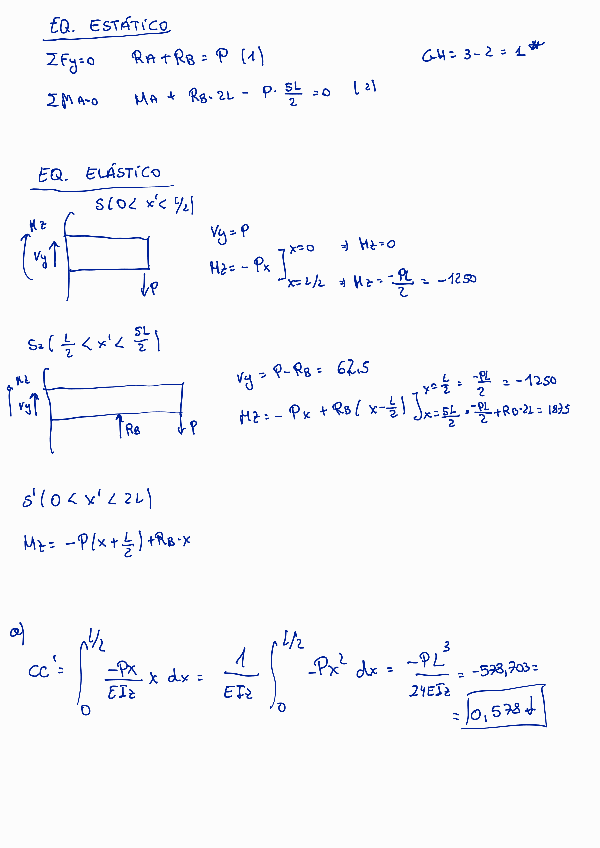 EQ. ESTÁTICO
ΣFy=0 RA+RB = P (1) GH = 3-2 = 1
ΣMA=0 MA + RB·2L - P· 5L/2 = 0 (2)
EQ. ELÁSTICO
S(0 < x' < L/2)
Mz
Vy
P
Vy = P
Mz = -Px ] x=0 ⇒ Mz=0
x=L/2 ⇒ Mz = -PL/2 = -1250
S2( L/2 < x' < 5L/2 )
Mz
Vy
RB
P
Vy = P-RB = 62,5
Mz = -Px + RB( x - L/2 ) ] x= L/2 = -PL/2 = -1250
x= 5L/2 = -PL/2 + RB·2L = 1875
S'(0 < x' < 2L)
Mz = -P(x + L/2) + RB·x
a)
CC' = ∫ 0 L/2 -Px/EIz x dx = 1/EIz ∫ 0 L/2 -Px² dx = -PL³/24EIz = -578,703 =
= 0,578 ↓